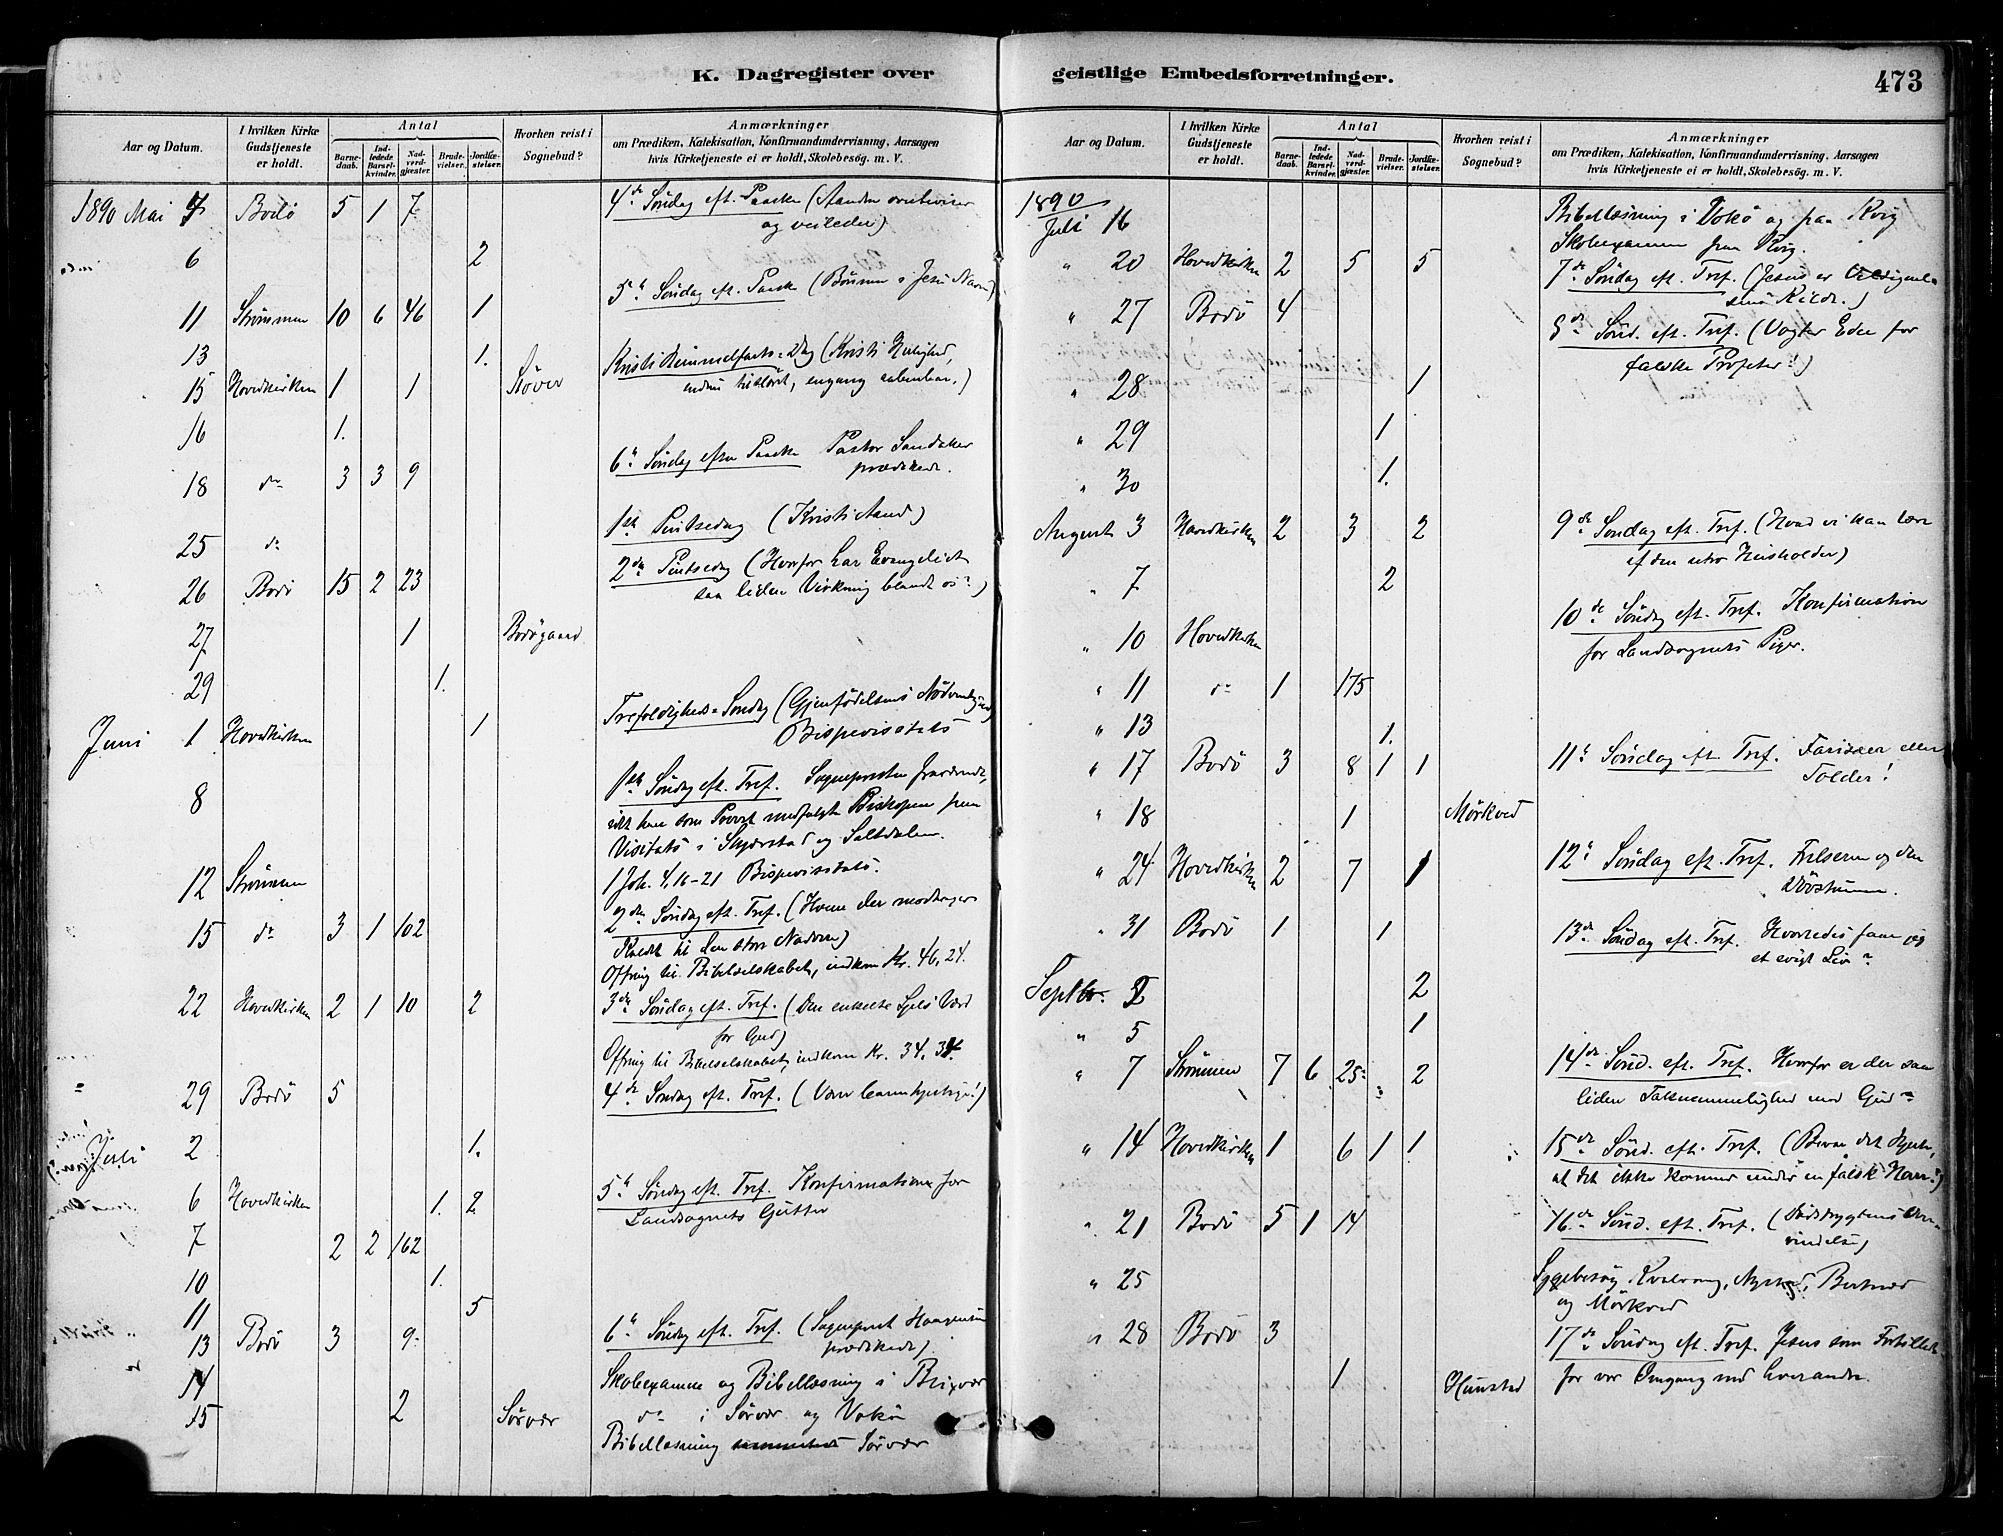 K. Dagregister over
Aar og Datum.
I hvilken Kirke Gudstjeneste er holdt.
Antal
Barnedaab.
Indledede Barselkvinder.
Nadverdgjæster.
Brudevielser.
Jordfæstelser.
Hvorhen reist i Sognebud?
Anmærkninger
om Prædiken, Katekisation, Konfirmandundervisning, Aarsagen
hvis Kirketjeneste ei er holdt, Skolebesøg. m. V.
1890 Mai 4 Bodö 5 1 7 4de Söndag eft. Paaske (Aanden
og veileder)
6 2
5te Söndag eft. Paaske (Bönnen i Jesu Navn)
11 Strömmen 10 6 46 1
13 1.
Kristi Himmelfarts-Dag (Kristi
15 Hovedkirken 1 1 Støver
16 1.
6te Söndag efter Paaske Pastor Sandaker
prædikede.
18 do 3 3 9
1ste Pintsedag (Kristi Aand)
25 do
2den Pintsedag (Hvorfor har Evangeliet
saa liden Virkning blandt os?)
26 Bodö 15 2 23
27 1 Bodögaard
29 1.
Trefoldigheds-Söndag (Gjenfödelsens Nödvendighed)
Bispevisitats
Juni 1 Hovedkirken 1
1ste Söndag eft. Tref. Sognepresten fraværende,
idet han som Provst medfulgte Biskopen paa
Visitats i Skjerstad og Saltdalen.
8
12 Strömmen 1 Joh. 4, 16-21 Bispevisitats.
2den Söndag eft. Tref. (Hvem der modtager
Kaldet til den store Nadvere)
15 do 3 1 102
Offring til Bibelselskabet, indkom Kr. 46,24.
22 Hovedkirken 2 1 10 2 3die Söndag eft. Tref. (Den enkelte Sjels Værd
for Gud)
Offring til Bibelselskabet, indkom Kr. 34,34.
29 Bodö 5 4de Söndag eft. Tref. (Vær barmhjertige!)
Juli 2 1.
5te Söndag eft. Tref. Konfirmation for
Landsognets Gutter
6 Hovedkirken 1. 2
7 2 2 162
10 1.
11 5
13 Bodö 3 9 6te Söndag eft. Tref. (Sogneprest
prædikede)
14 Skoleexamen og Bibellæsning i Brixvær
15 2 Sörvær do i Sörvær og Vokö
Bibellæsning Sörvær
geistlige Embedsforretninger.
473
Aar og Datum.
I hvilken Kirke Gudstjeneste er holdt.
Antal
Barnedaab.
Indledede Barselkvinder.
Nadverdgjæster.
Brudevielser.
Jordfæstelser.
Hvorhen reist i Sognebud?
Anmærkninger
om Prædiken, Katekisation, Konfirmandundervisning, Aarsagen
hvis Kirketjeneste ei er holdt, Skolebesøg. m. V.
1890
Juli 16 Bibellæsning i Vokö og paa
Skoleexamen paa
" 20 Hovedkirken 2 5 5 7de Söndag eft. Tref. (Jesus er
Kilde.)
" 27 Bodö 4 8de Sönd. eft. Tref. (Vogter Eder for
falske Profeter!)
" 28 1
" 29 1
" 30 1.
August 3 Hovedkirken 2 3 2 9de Söndag eft. Tref. (Hvad vi kan lære
af den utro Husholder)
" 7 2
10de Söndag eft. Tref. Konfirmation
for Landsognets Piger.
" 10 Hovedkirken
" 11 do 1 175
" 13 1.
" 17 Bodö 3 8 1 1 11te Söndag eft. Tref. Farisæer eller
Tolder!
" 18 1 Mörkved
" 24 Hovedkirken 2 7 1 12te Söndag eft. Tref. Frelseren og den
Dövstumme.
" 31 Bodö 1 1 13de Söndag eft. Tref. Hvorledes faar jeg
et evigt Liv?
Septbr. 2 2
" 5 1
" 7 Strömmen 7 6 25 2 14de Sönd. eft. Tref. Hvorfor er der saa
liden Taknemmelighed mod Gud?
" 14 Hovedkirken 1 6 1 1 15de Sönd. eft. Tref. (Bevar dit Hjerte,
at det ikke kommer under en falsk Herre!)
" 21 Bodö 5 1 14 16de Sönd. eft. Tref. (Dödsfrygtens Overvindelse)
" 25 Sygebesög Kvalvaag, Bertnes
og Mörkved
" 28 Bodö 3 17de Söndag eft. Tref. Jesus som
for vor Omgang med hverandre.
1 Hunstad